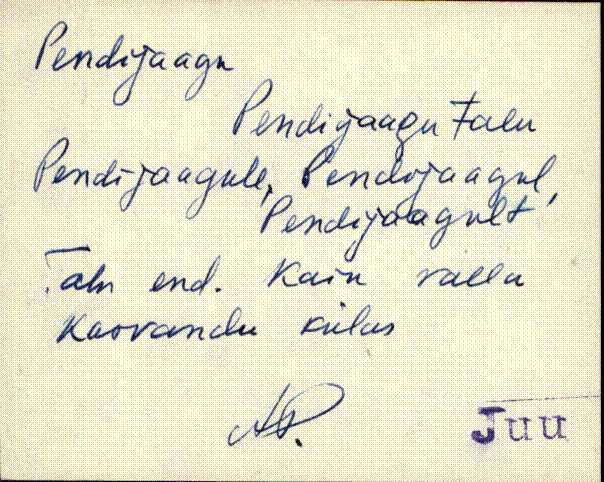 Pendijaagu
Pendijaagu Talu
Pendijaagule, Pendijaagul,
Pendijaagult
Talu end. Kaiu valla
Kasvandu külas
Juu